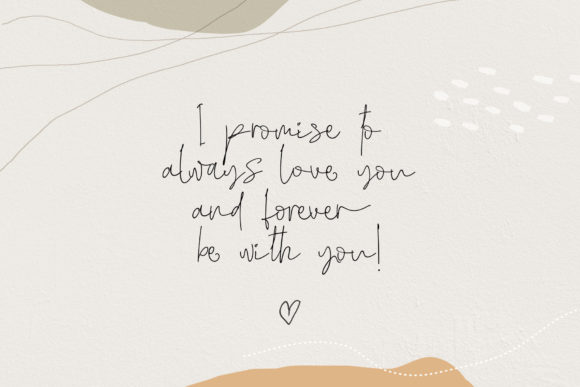 I promise to
always love you
and forever
be with you!